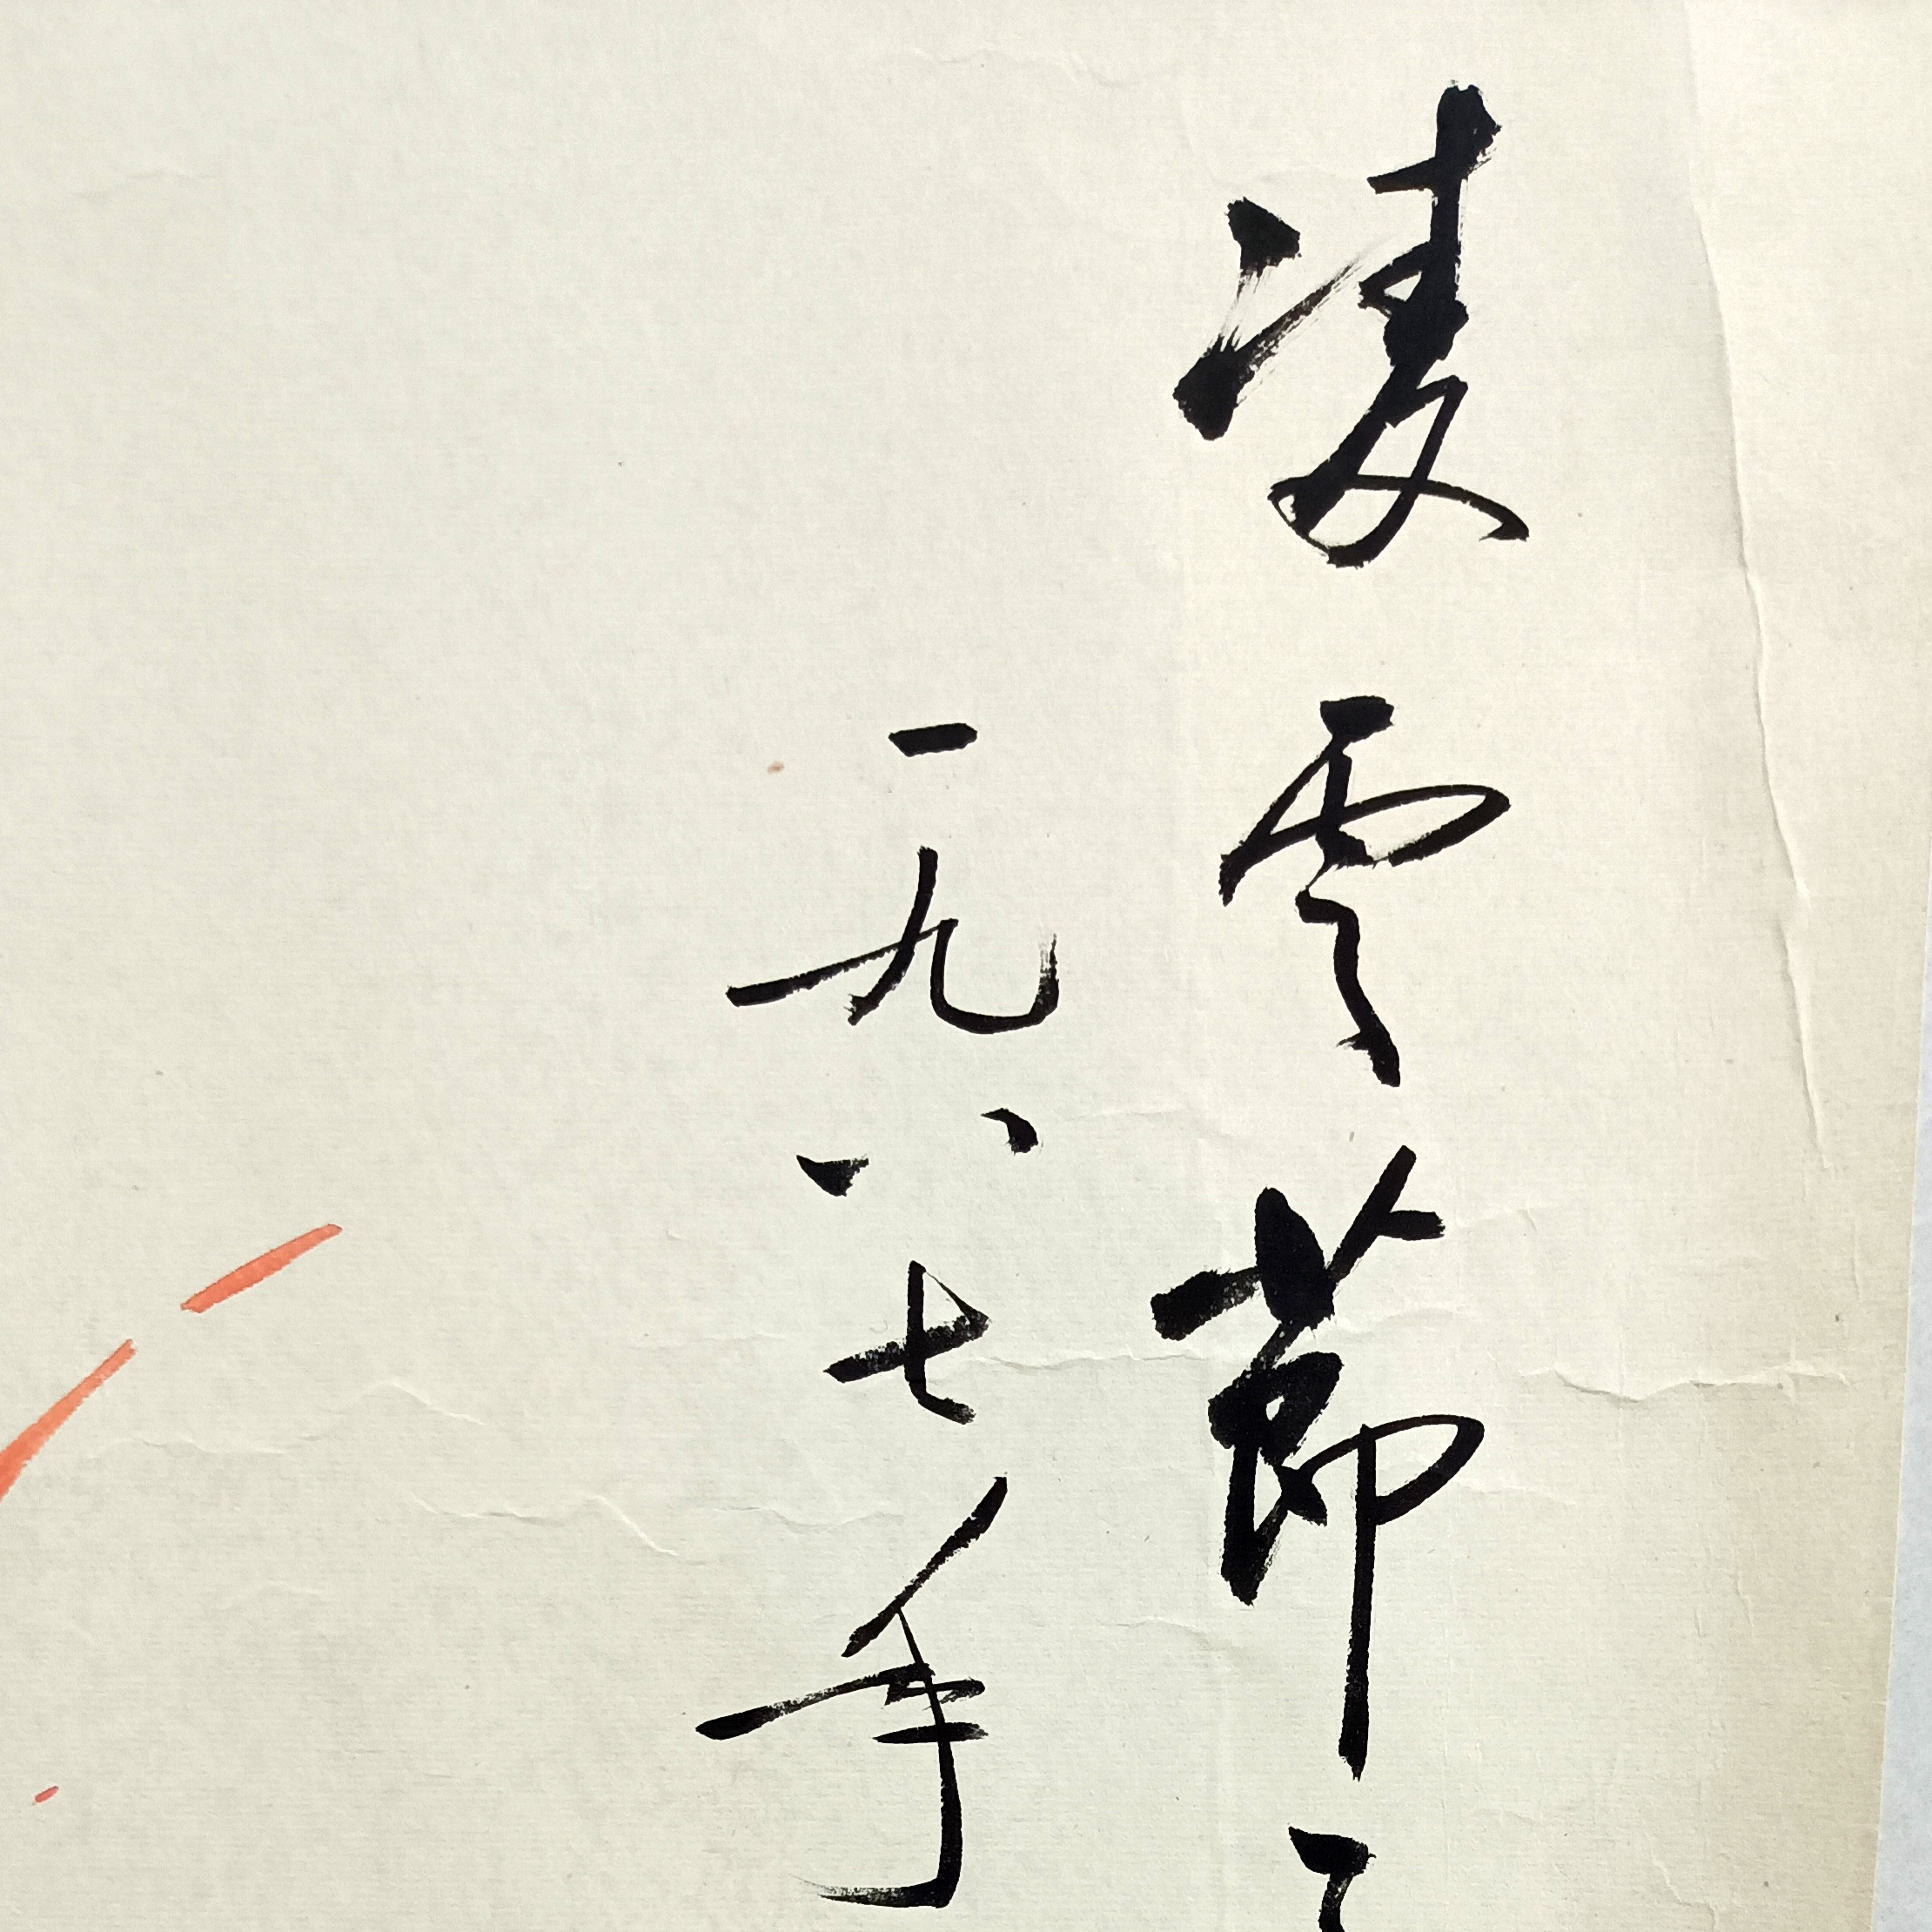 凌雲節
一九八七年